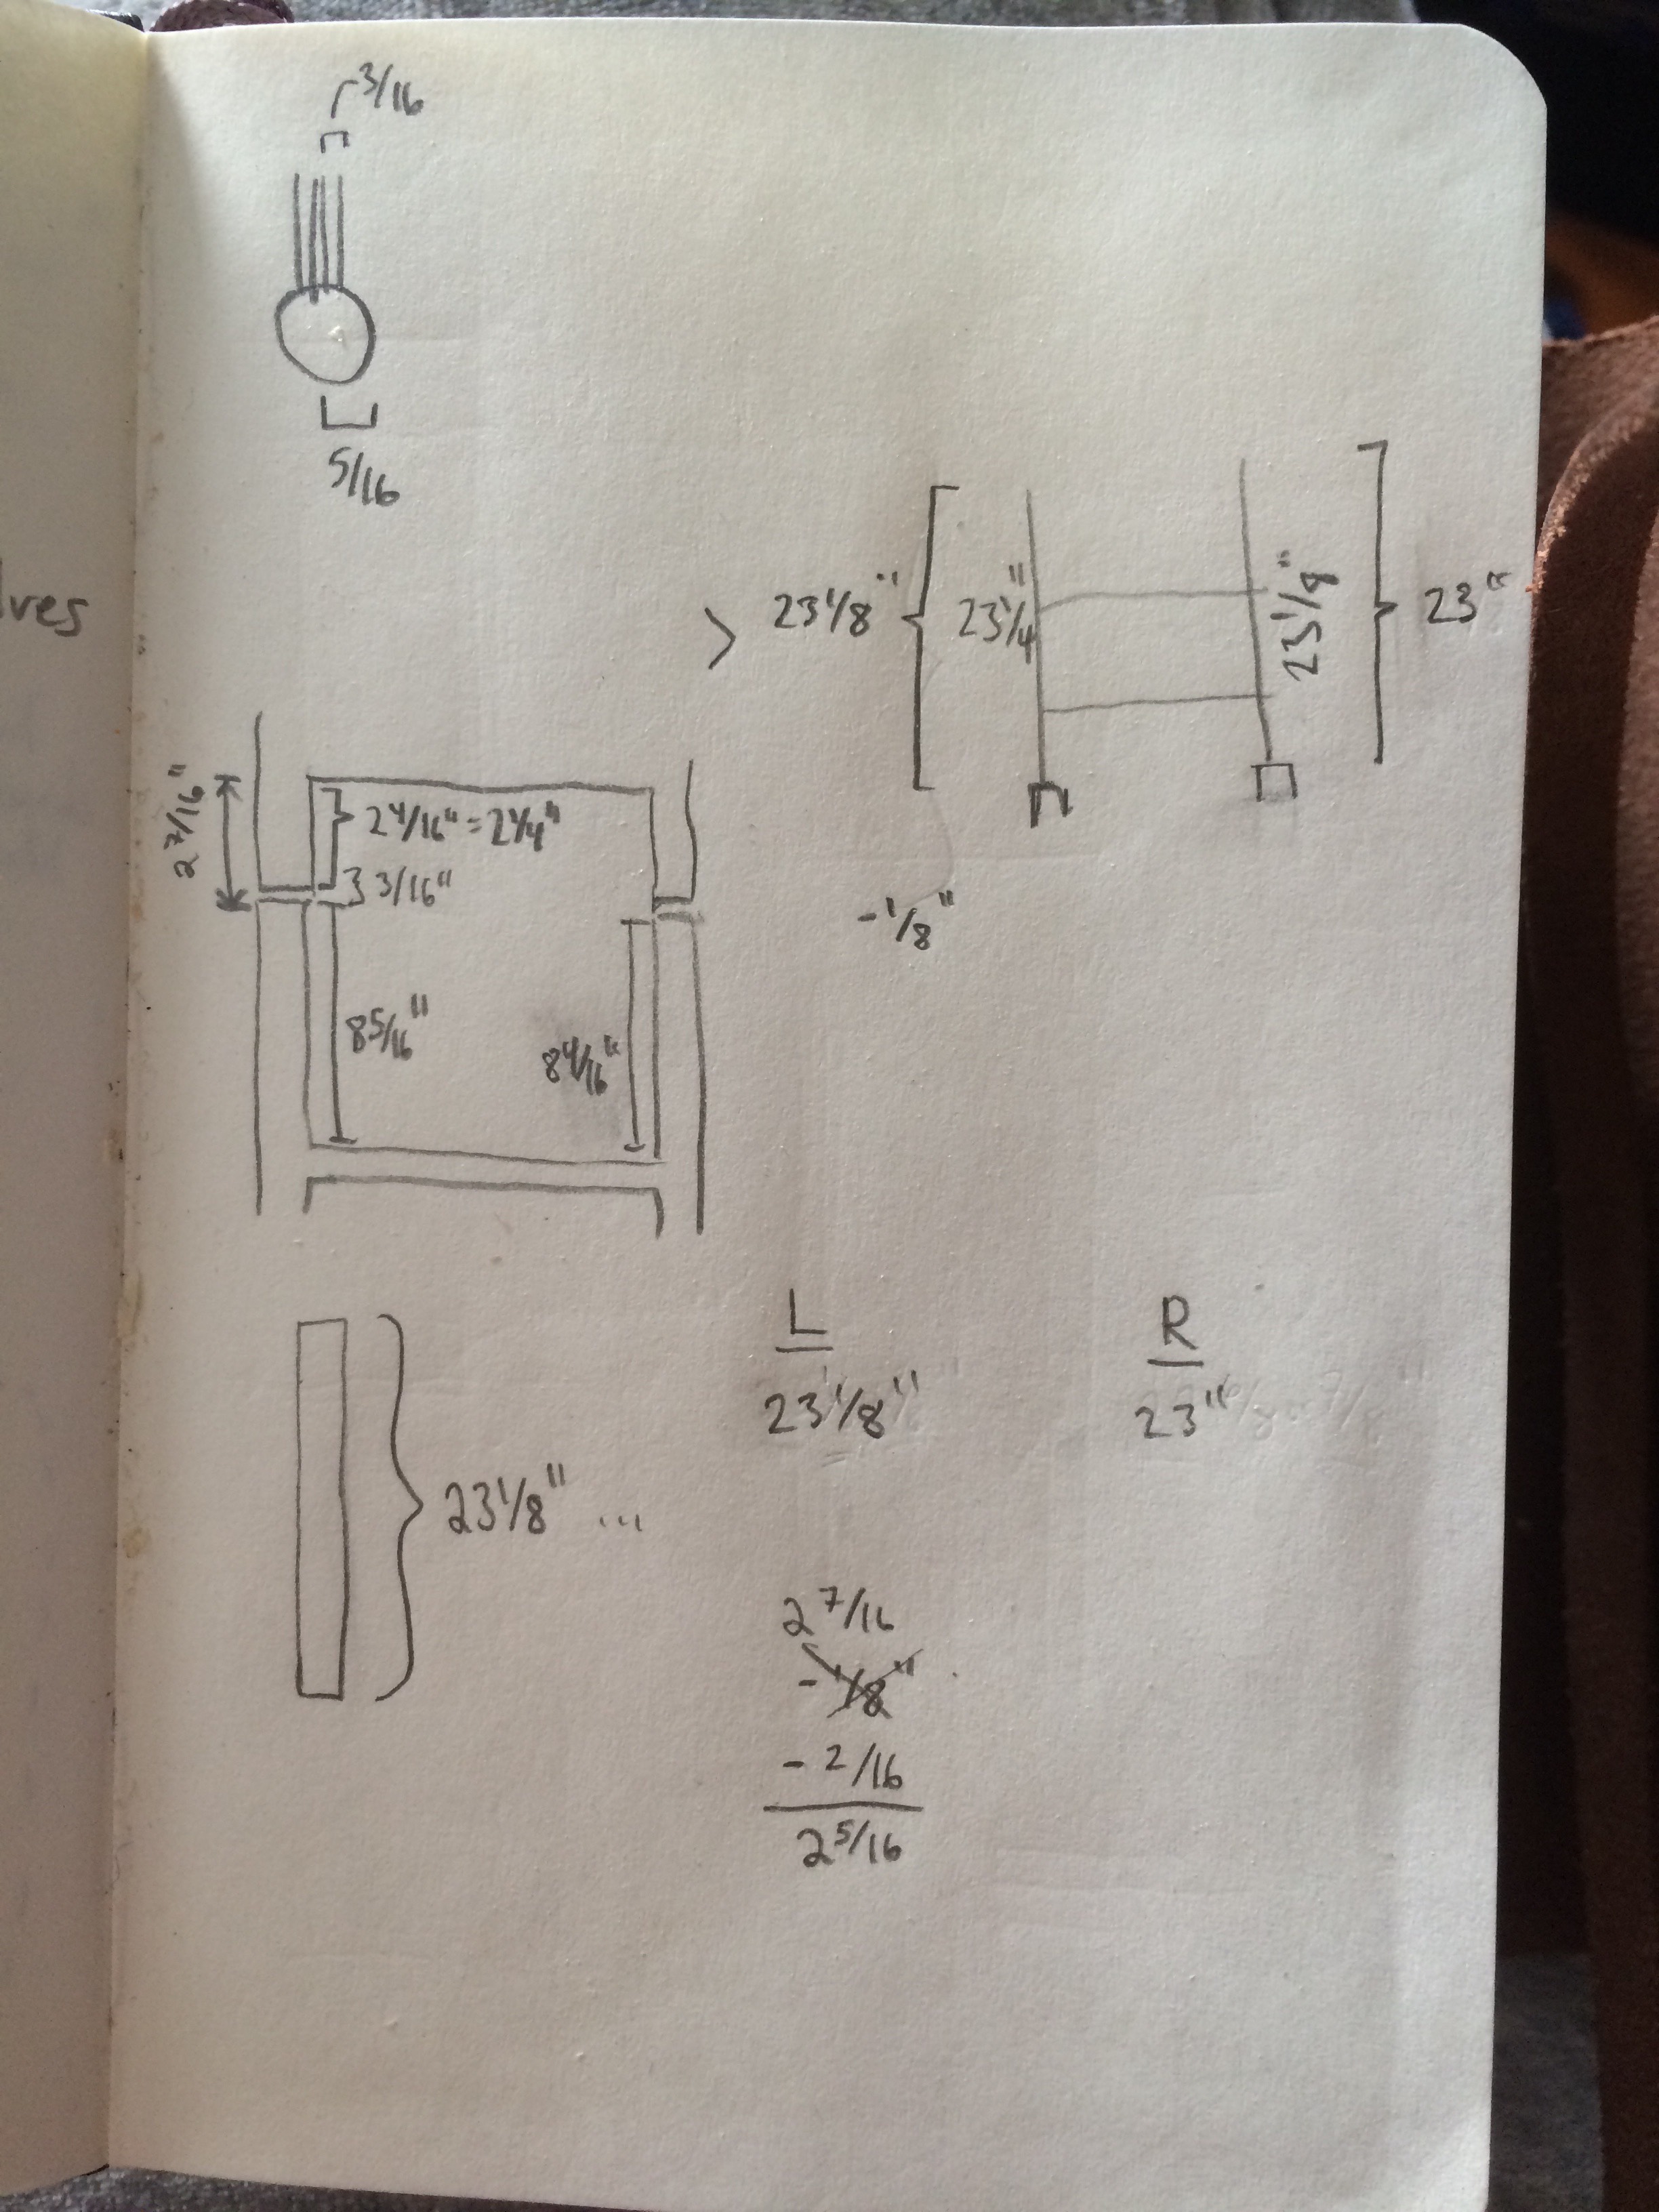 3/16
5/16
lves
23 1/8" 23 1/4" 23 1/8" 23"
2 7/16"
2 4/16" = 2 1/4"
3/16"
- 1/8"
8 5/16"
8 4/16"
L R
23 1/8" 23"
23 1/8" ...
2 7/16
- 1/8"
- 2/16
2 5/16